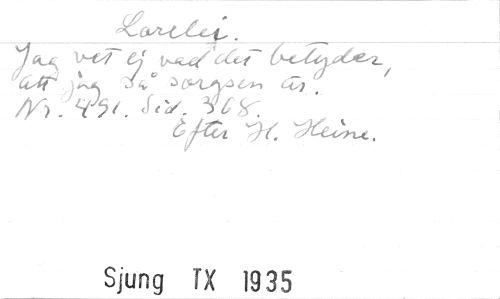 Lorelei.
Jag vet ej vad det betyder,
att jag så sorgsen är.
Nr. 491. Sid. 368.
Efter H. Heine.
Sjung TX 1935